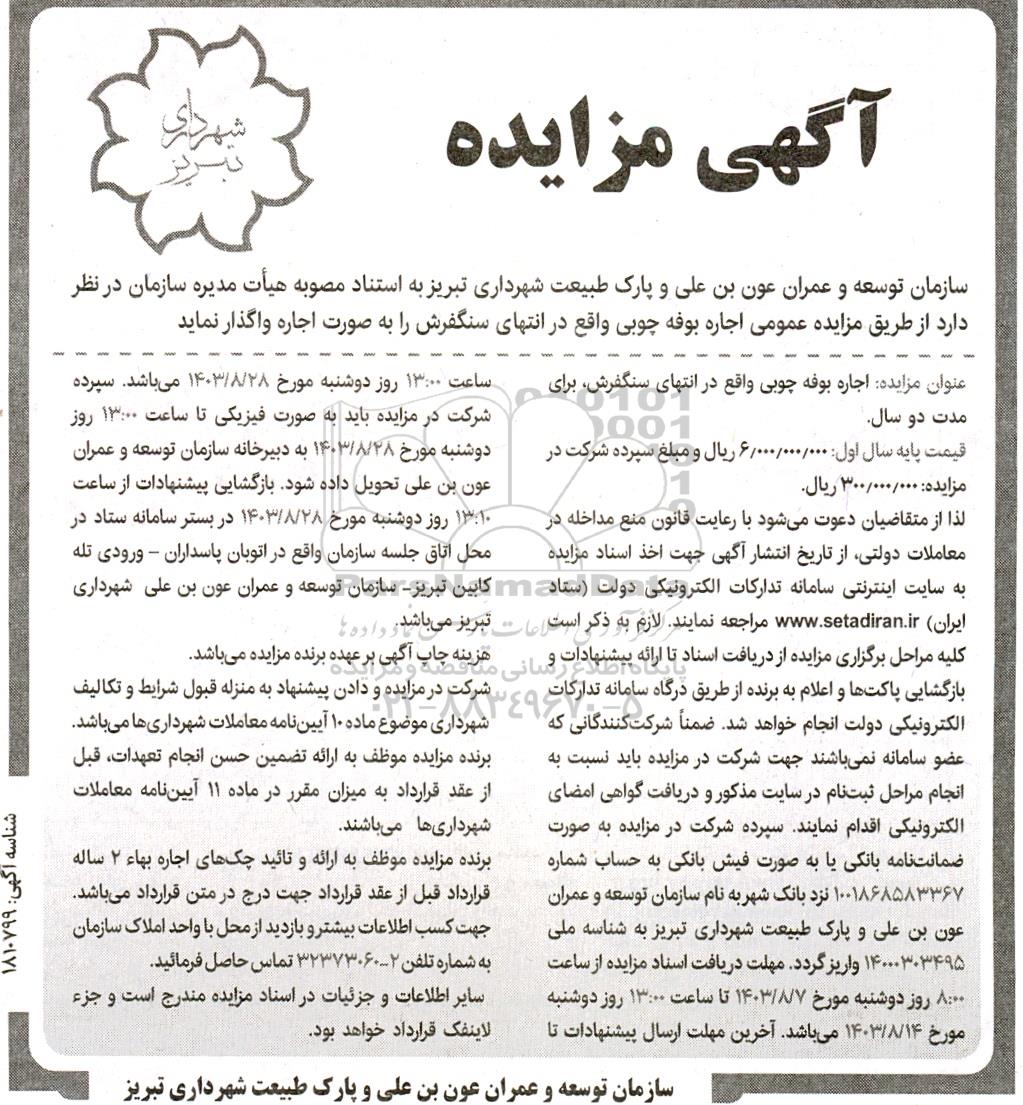 شهرداری
تبریز
آگهی مزایده
سازمان توسعه و عمران عون بن علی و پارک طبیعت شهرداری تبریز به استناد مصوبه هیأت مدیره سازمان در نظر
دارد از طریق مزایده عمومی اجاره بوفه چوبی واقع در انتهای سنگفرش را به صورت اجاره واگذار نماید
عنوان مزایده: اجاره بوفه چوبی واقع در انتهای سنگفرش، برای
مدت دو سال.
قیمت پایه سال اول: ۶/۰۰۰/۰۰۰/۰۰۰ ریال و مبلغ سپرده شرکت در
مزایده: ۳۰۰/۰۰۰/۰۰۰ ریال.
لذا از متقاضیان دعوت می‌شود با رعایت قانون منع مداخله در
معاملات دولتی، از تاریخ انتشار آگهی جهت اخذ اسناد مزایده
به سایت اینترنتی سامانه تدارکات الکترونیکی دولت (ستاد
ایران) www.setadiran.ir مراجعه نمایند. لازم به ذکر است
کلیه مراحل برگزاری مزایده از دریافت اسناد تا ارائه پیشنهادات و
بازگشایی پاکت‌ها و اعلام به برنده از طریق درگاه سامانه تدارکات
الکترونیکی دولت انجام خواهد شد. ضمناً شرکت‌کنندگانی که
عضو سامانه نمی‌باشند جهت شرکت در مزایده باید نسبت به
انجام مراحل ثبت‌نام در سایت مذکور و دریافت گواهی امضای
الکترونیکی اقدام نمایند. سپرده شرکت در مزایده به صورت
ضمانت‌نامه بانکی یا به صورت فیش بانکی به حساب شماره
۱۰۰۱۸۶۸۵۸۳۳۶۷ نزد بانک شهر به نام سازمان توسعه و عمران
عون بن علی و پارک طبیعت شهرداری تبریز به شناسه ملی
۱۴۰۰۰۳۰۳۴۹۵ واریز گردد. مهلت دریافت اسناد مزایده از ساعت
۸:۰۰ روز دوشنبه مورخ ۱۴۰۳/۸/۷ تا ساعت ۱۳:۰۰ روز دوشنبه
مورخ ۱۴۰۳/۸/۱۴ می‌باشد. آخرین مهلت ارسال پیشنهادات تا
ساعت ۱۳:۰۰ روز دوشنبه مورخ ۱۴۰۳/۸/۲۸ می‌باشد. سپرده
شرکت در مزایده باید به صورت فیزیکی تا ساعت ۱۳:۰۰ روز
دوشنبه مورخ ۱۴۰۳/۸/۲۸ به دبیرخانه سازمان توسعه و عمران
عون بن علی تحویل داده شود. بازگشایی پیشنهادات از ساعت
۱۳:۱۰ روز دوشنبه مورخ ۱۴۰۳/۸/۲۸ در بستر سامانه ستاد در
محل اتاق جلسه سازمان واقع در اتوبان پاسداران – ورودی تله
کابین تبریز- سازمان توسعه و عمران عون بن علی شهرداری
تبریز می‌باشد.
هزینه چاپ آگهی بر عهده برنده مزایده می‌باشد.
شرکت در مزایده و دادن پیشنهاد به منزله قبول شرایط و تکالیف
شهرداری موضوع ماده ۱۰ آیین‌نامه معاملات شهرداری‌ها می‌باشد.
برنده مزایده موظف به ارائه تضمین حسن انجام تعهدات، قبل
از عقد قرارداد به میزان مقرر در ماده ۱۱ آیین‌نامه معاملات
شهرداری‌ها می‌باشند.
برنده مزایده موظف به ارائه و تائید چک‌های اجاره بهاء ۲ ساله
قرارداد قبل از عقد قرارداد جهت درج در متن قرارداد می‌باشد.
جهت کسب اطلاعات بیشتر و بازدید از محل با واحد املاک سازمان
به شماره تلفن ۲-۳۲۳۷۳۰۶۰ تماس حاصل فرمائید.
سایر اطلاعات و جزئیات در اسناد مزایده مندرج است و جزء
لاینفک قرارداد خواهد بود.
ParsNamadData
پایگاه اطلاع رسانی مناقصه و مزایده
۰۲۱-۸۸۳۴۹۶۷۰-۵
شناسه آگهی: ۱۸۱۰۷۹۹
سازمان توسعه و عمران عون بن علی و پارک طبیعت شهرداری تبریز